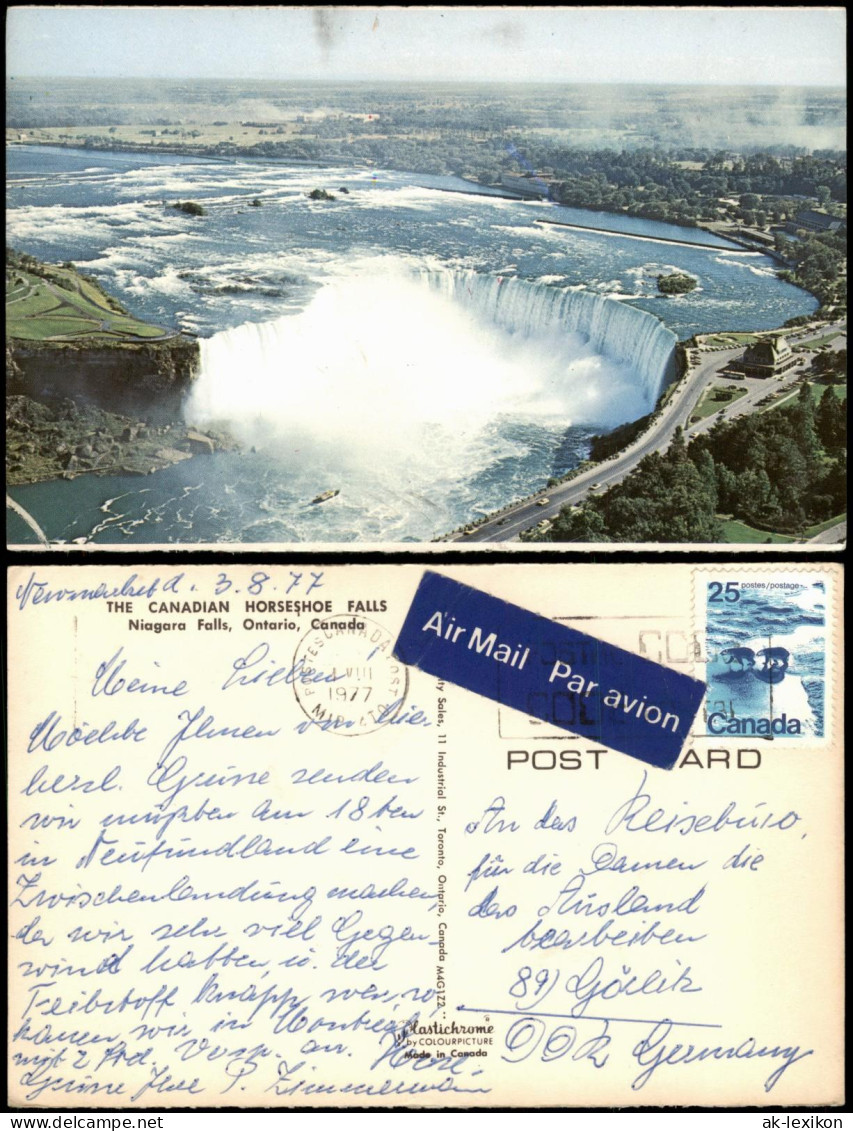 Newmarket d. 3.8.77
THE CANADIAN HORSESHOE FALLS
Niagara Falls, Ontario, Canada
Meine Lieben!
Möchte Ihnen von hier
herzl. Grüße senden
wir mußten am 18ten
in Neufundland eine
Zwischenlandung machen,
da wir sehr viel Gegen-
wind hatten, u. der
Treibstoff knapp war, so
kamen wir in Montreal
mit 2 Std. Versp. an. Herzl.
Grüße Ihre P. Zimmermann
POSTES CANADA POSTES
VIII
1977
Air Mail Par avion
25 postes/postage
Canada
POST CARD
Sales, 11 Industrial St., Toronto, Ontario, Canada M4G1Z2
An das Reisebüro,
für die Damen die
das Ausland
bearbeiten
89) Görlitz
DDR Germany
Plastichrome
by COLOURPICTURE
Made in Canada
ak-lexikon.com